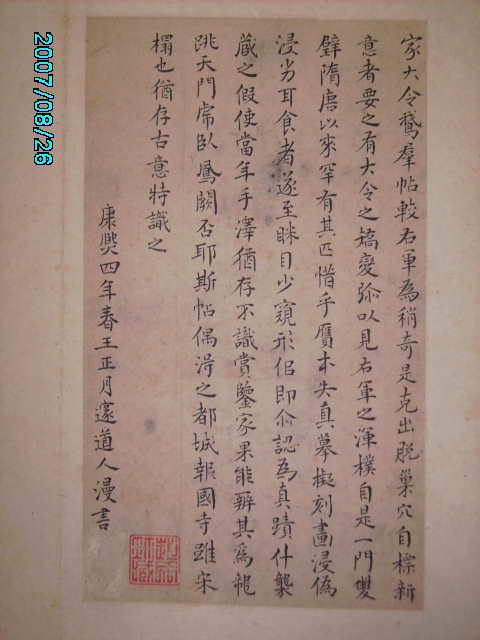 家大令鵝羣帖較右軍為稍奇是克出脫巢穴自標新
意者要之有大令之矯變弥以見右軍之渾樸自是一門雙
璧隋唐以來罕有其匹惜乎贋本失真摹擬刻畫浸偽
浸劣耳食者遂至眯目少窺形侣即尒認為真蹟什襲
藏之假使當年手澤猶存不識賞鑒家果能辨其為龍
跳天門虎臥鳳闕否耶斯帖偶淂之都城報國寺雖宋
榻也猶存古意特識之
康熙四年春王正月邃道人漫書
2007/08/26